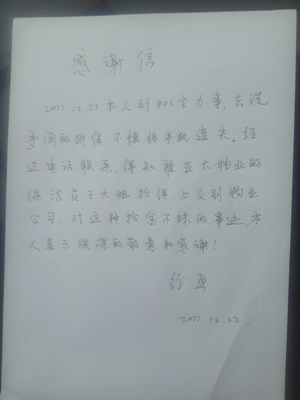 感谢信
2011.12.22本人到802室办事,去洗
手间的时候不慎将手机遗失。经
过电话联系,得知被亚太物业的
保洁员王大姐拾得,上交到物业
公司。对这种拾金不昧的事迹,本
人表示深深的敬意和感谢!
2011.12.22.